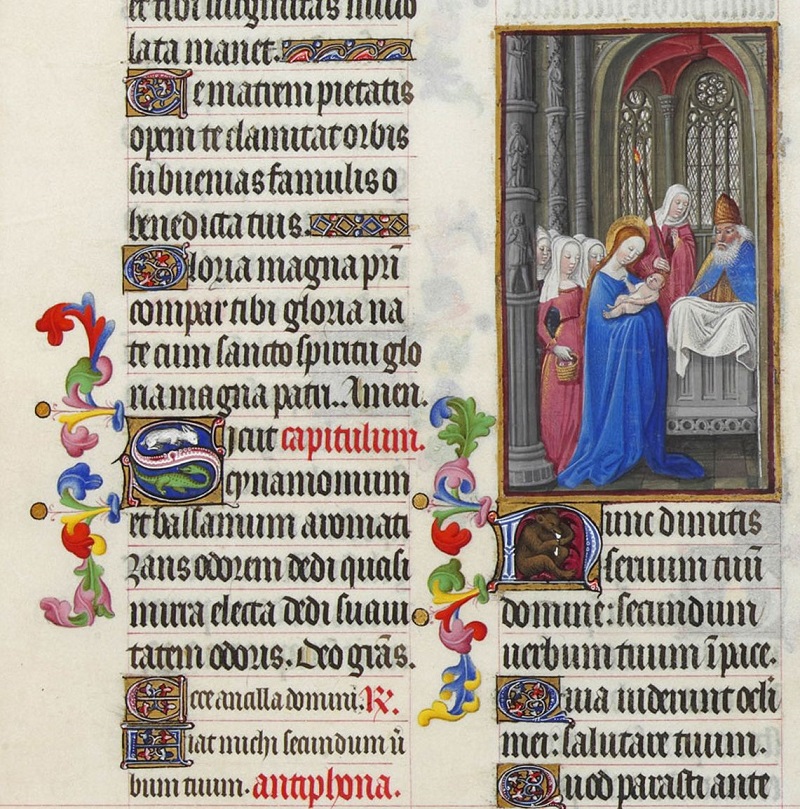 et tibi magnitas mundo
lata manet.
Te matrem pietatis
opem te clamitat orbis
subuenias famulis o
benedicta tuis.
Gloria magna pr̄i
compar tibi gloria na
te cum sancto spiritu glo
ria magna patri. Amen.
Sicut capitulum.
cynamomum
et balsamum aromati
zans odorem dedi quasi
mirra electa dedi suaui
tatem odoris. Deo gr̄as.
Ecce ancilla domini. R̷.
Fiat michi secundum ū
bum tuum. antiphona.
Nunc dimitis
seruum tuū
domine: secundum
uerbum tuum ī pace.
Quia uiderunt ocli
mei: salutare tuum.
Quod parasti ante